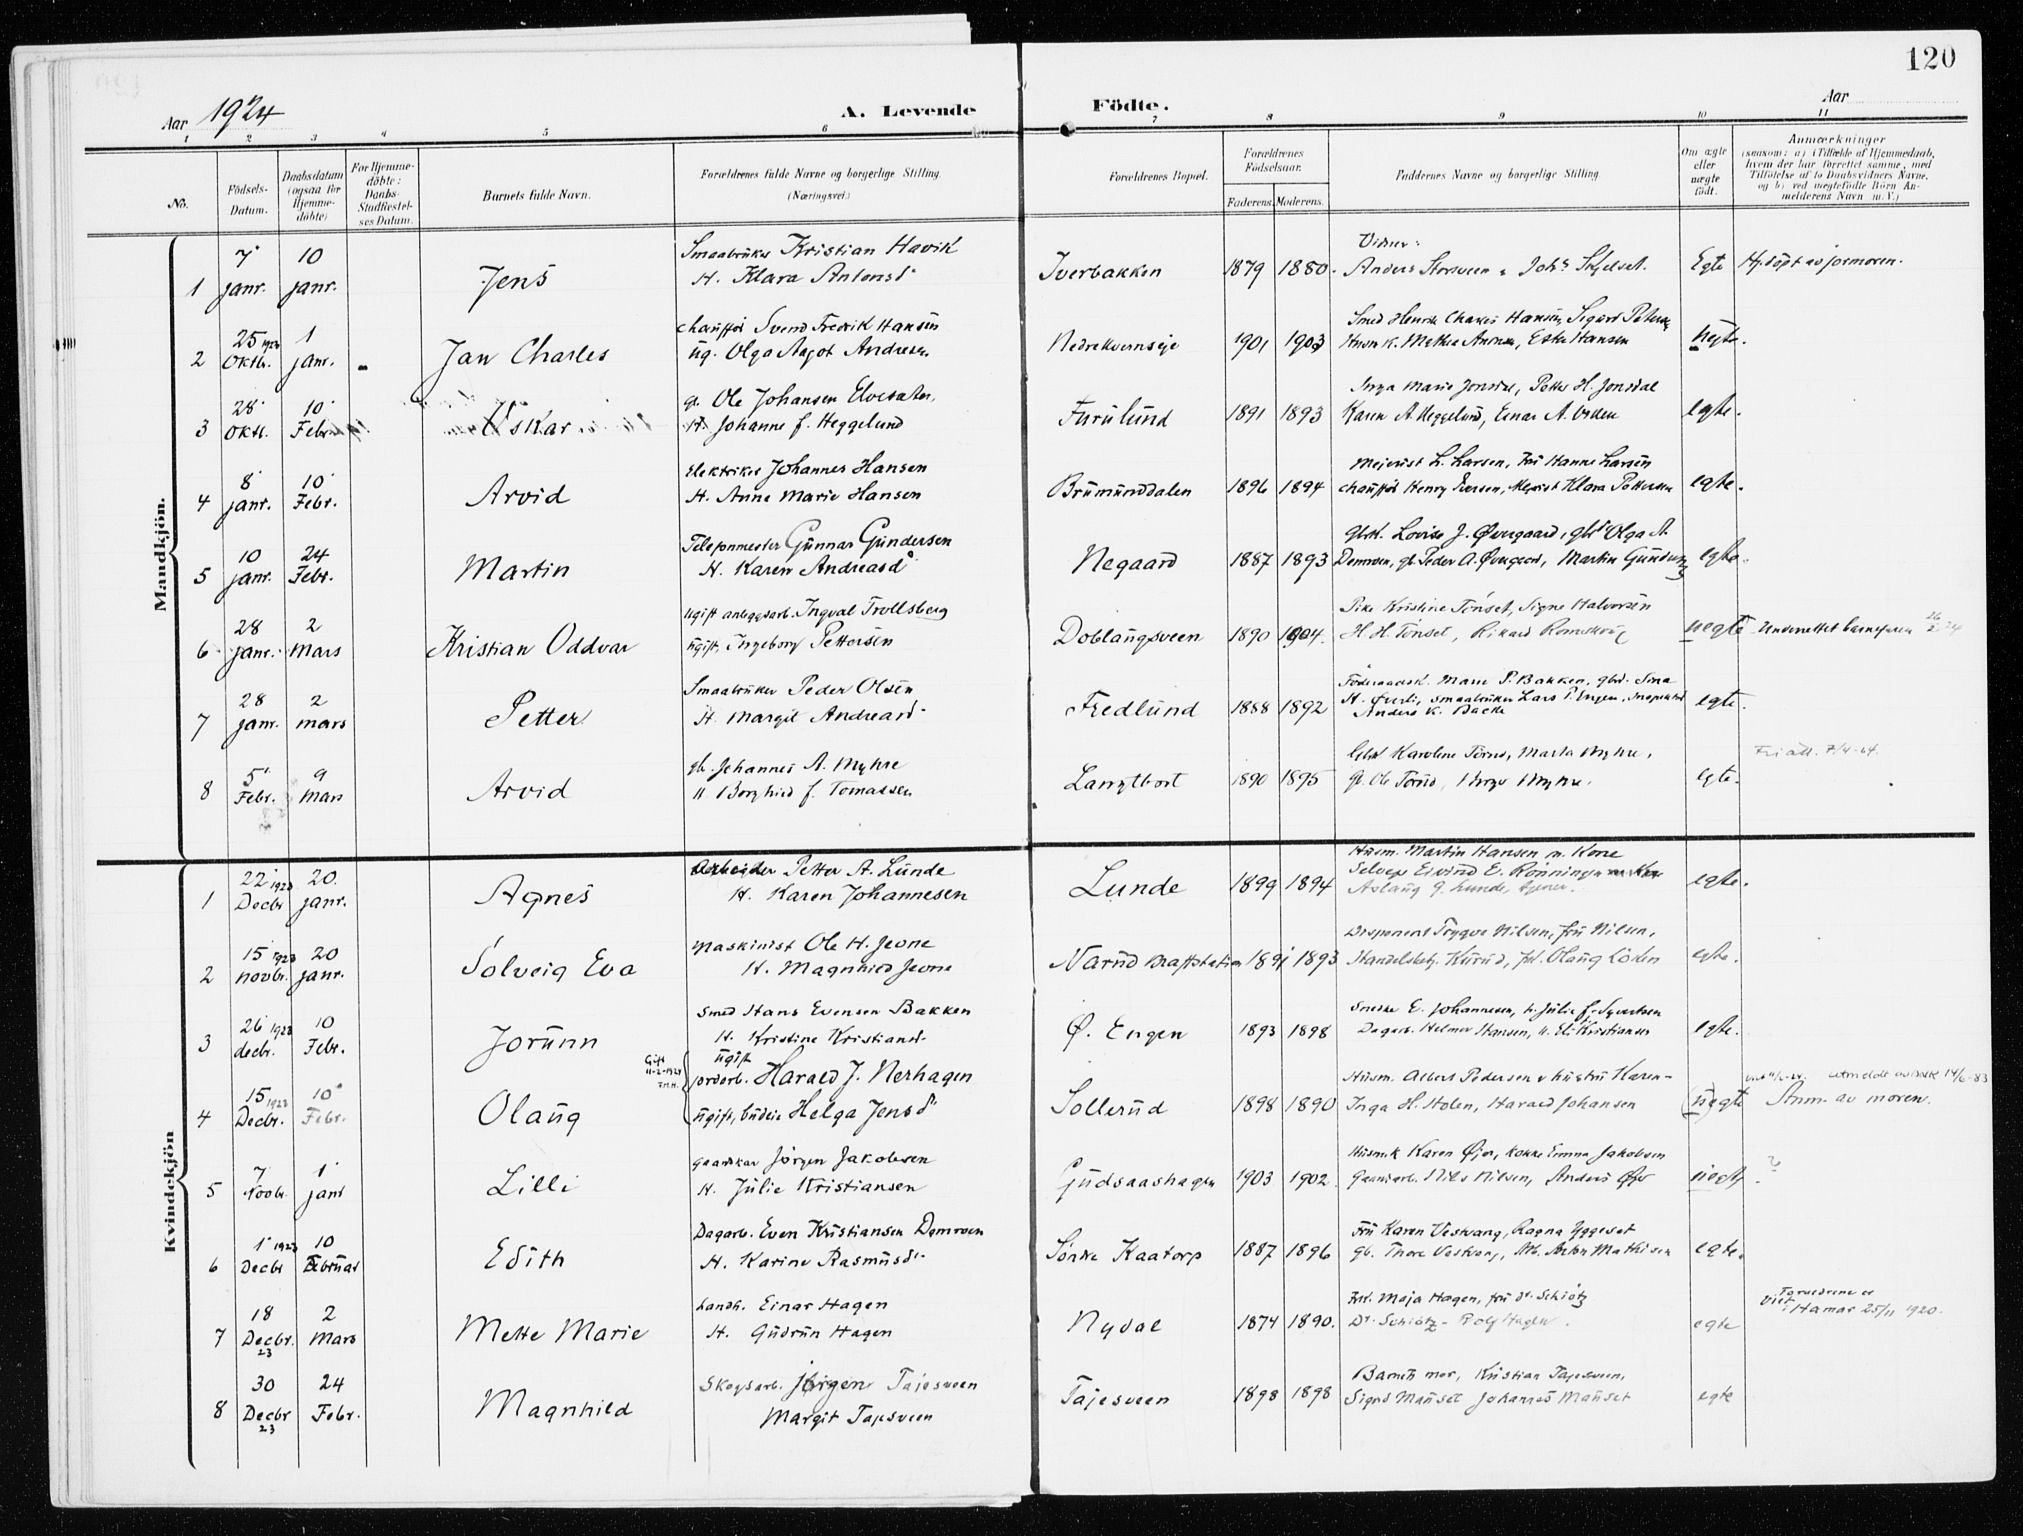 120
Aar 1924
A. Levende Födte.
Aar
1 2 3 4 5 6 7 8 9 10 11
No.
Födsels-Datum.
Daabsdatum (ogsaa for Hjemme-döbte)
For Hjemme-döbte: Daabs-Stadfæstel-ses Datum.
Barnets fulde Navn.
Forældrenes fulde Navne og borgerlige Stilling (Næringsvei.)
Forældrenes Bopæl.
Forældrenes Födselsaar.
Faderens. Moderens.
Faddernes Navne og borgerlige Stilling
Om ægte eller uægte födt.
Anmærkninger
(saasom: a) i Tilfælde af Hjemmedaab,
hvem der har forrettet samme, med
Tilföielse af to Daabsvidners Navne,
og b) ved uægtefödte Börn An-
melderens Navn m.V.)
Mandkjön.
1 7 janr. 10 janr. Jens
Smaabruker Kristian Havik
H. Klara Antonsd.
Iverbakken 1879 1880.
Vidner:
Anders Storsveen
Egte Hj.döpt av jormoren.
2 25 1923 Oktb. 1 janr. Jan Charles
chauffør Svend Fredrik Hansen
ug. Olga Aagot Andresen
Nedrekvernseje 1901 1903
Smed Henrik Charles Hansen, Sigurd Peters
Ester Hansen
uegte.
3 28 Oktb. 10 Febr. Oskar
g. Ole Johansen Elvesæter,
H. Johanne f. Heggelund
Furulund 1891 1893
Inga Marie Jonsdal, Petter H. Jonsdal
Karen A. Heggelund, Einar A.
egte.
4 8 janr. 10 Febr. Arvid
Elektriker Johannes Hansen
H. Anne Marie Hansen
Brumunddalen 1896 1894
Meierist L. Larsen, Fru Hanne Larsen
chauffør Henry Iversen, Klara Pettersen
egte.
5 10 janr. 24 Febr. Martin
Telefonmester Gunnar Gundersen
H. Karen Andreasd.
Negaard 1887 1893
Gbk. Lovise J. Øvergaard, Olga A.
Domroen, gb. Peder A. Øvergaard, Martin Gundersen
egte.
6 28 janr. 2 Mars Kristian Oddvar
ugift anleggsarb. Ingval Trollsberg
ugift, Ingeborg Pettersen
Doblaugsveen 1890 1904.
Pike Kristine Tønset, Signe Halvorsen
H. H. Tønset, Rikard Romskoug
uegte Underrettet barnefaren 26/2 24
7 28 janr. 2 mars Petter
Smaabruker Peder Olsen
H. Margit Andreasd.
Fredlund 1888 1892
Föderaadsk. Marie P. Bakken, gbd.
H. Øverli, smaabruker Lars P. Engen, Inspektør
Anders K. Bakke
egte.
8 5 Febr. 9 Mars Arvid
gb. Johannes A. Myhre
H. Borghild f. Tomassen
Langtbort 1890 1895
Gbk Karoline Torud, Marta Myhre,
gb. Ole Torud, Myhre.
egte.
7/4-64.
Kvindekjön
1 22 1923 Decbr 20 janr. Agnes
Arbeider Petter A. Lunde
H. Karen Johannesen
Lunde 1899 1894
Husm. Martin Hansen m. Kone
Selvei Eivind E. Rönningen m. Kone
Aslaug g. Lunde, tjener.
egte.
2 15 1923 novbr. 20 janr. Solveig Eva
Maskinist Ole H. Jevne
H. Magnhild Jevne
Narud Kraftstation 1891 1893
Disponent Trygve Nilsen, fru Nilsen,
Handelsbetj. Kurud, frk. Olaug Löken
egte.
3 26 1923 decbr. 10 Febr. Jorunn
Smed Hans Evensen Bakken
H. Kristine Kristiansd.
Ø. Engen 1893 1898
Snekker E. Johannesen, h. Julie f. Syvertsen
Dagarb. Helmer Hansen, H. El. Kristiansen
egte.
4 15 1923 Decbr. 10 Febr. Olaug
Gift 11-2-1924
ugift
jordarb. Harald J. Nerhagen
ugift, budeie Helga Jensd.
Sollerud 1898 1890
Husm. Albert Pedersen & hustru Karen-
Inga H. Holen, Harald Johansen
(uegte) utmeldt 14/6-83
Anm. av moren.
5 7 Novbr. 1 janr Lilli
gaardskar Jörgen Jakobsen
H. Julie Kristiansen
Gudsaashagen 1903 1902.
Husm.k. Karen Øier, kokke Emma Jakobsen
gaardsarb. Nils Nilsen, Anders Øier
uegte.
?
6 1 1923 Decbr 10 Februar Edith
Dagarb. Even Kristiansen Domroen
H. Karine Rasmusd.
Søndre Kaatorp 1887 1896
Fru Karen Vestvang, Ragna Yggeset
gb. Thore Vestvang, Arb. Anton Mathisen
egte.
7 18 Decbr. 23 2 Mars Mette Marie
Landh. Einar Hagen
H. Gudrun Hagen
Nydal 1874 1890.
Frk. Maja Hagen, fru dr. Schiötz
Dr. Schiötz - Rolf Hagen.
egte
Foreldrene er
viet i Hamar 25/11 1920.
8 30 Decbr 23 24 Febr. Magnhild
Skogsarb. Jörgen Tajesveen
Margit Tajesveen
Tajesveen 1898 1898
Barnets mor, Kristian Tajesveen,
Sigrid Mauset Johannes Mauset
egte